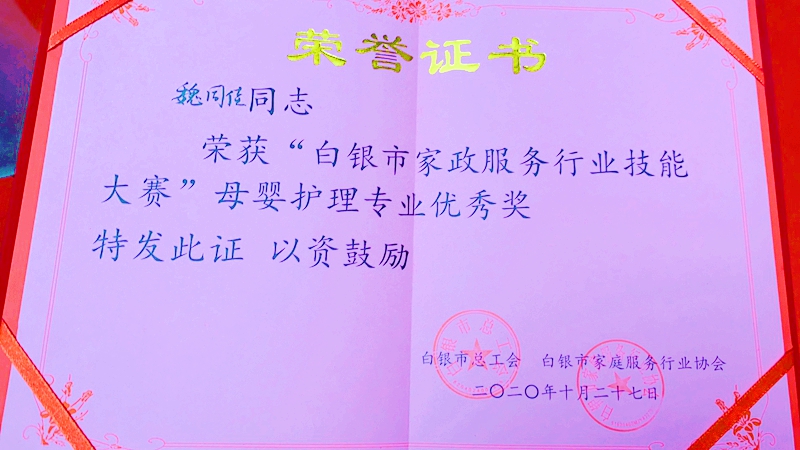 荣誉证书
魏同佳同志
荣获“白银市家政服务行业技能
大赛”母婴护理专业优秀奖
特发此证 以资鼓励
白银市总工会 白银市家庭服务行业协会
二〇二〇年十月二十七日